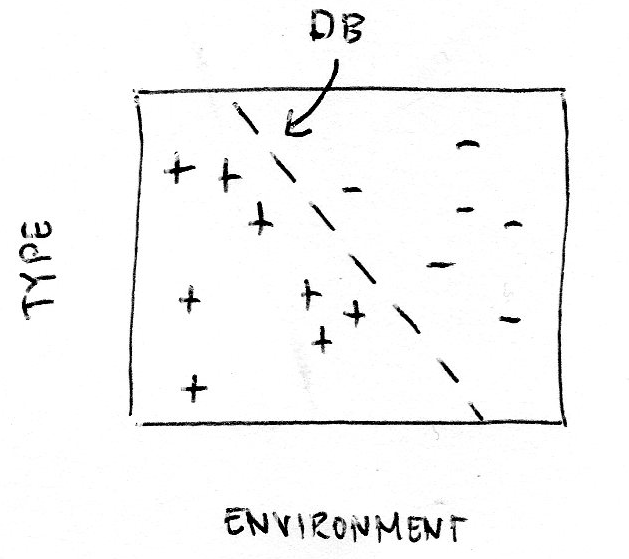 DB
TYPE
ENVIRONMENT